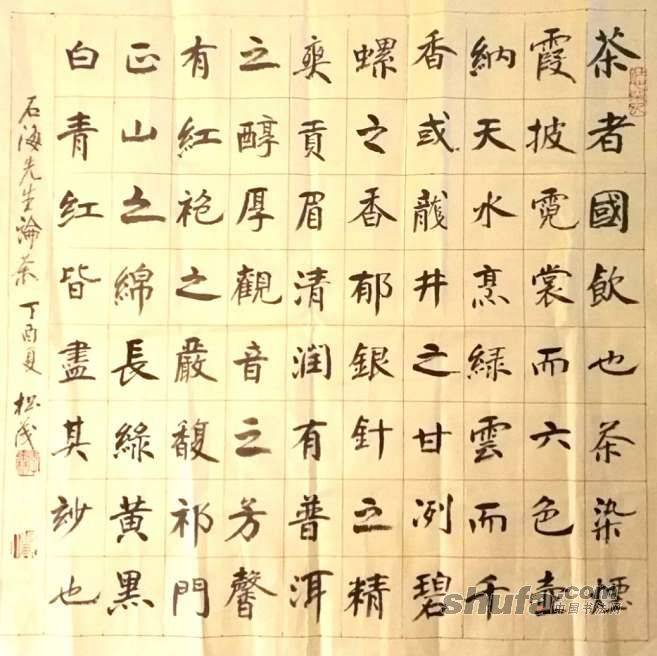 茶者國飲也茶染煙
霞披霓裳而六色壶
納天水烹綠雲而千
香或龍井之甘冽碧
螺之香郁銀針之精
爽貢眉清潤有普洱
之醇厚觀音之芳馨
有紅袍之嚴馥祁門
正山之綿長綠黃黑
白青紅皆盡其妙也
石海先生論茶 丁酉夏 松茂
shufa.com
中国书法网